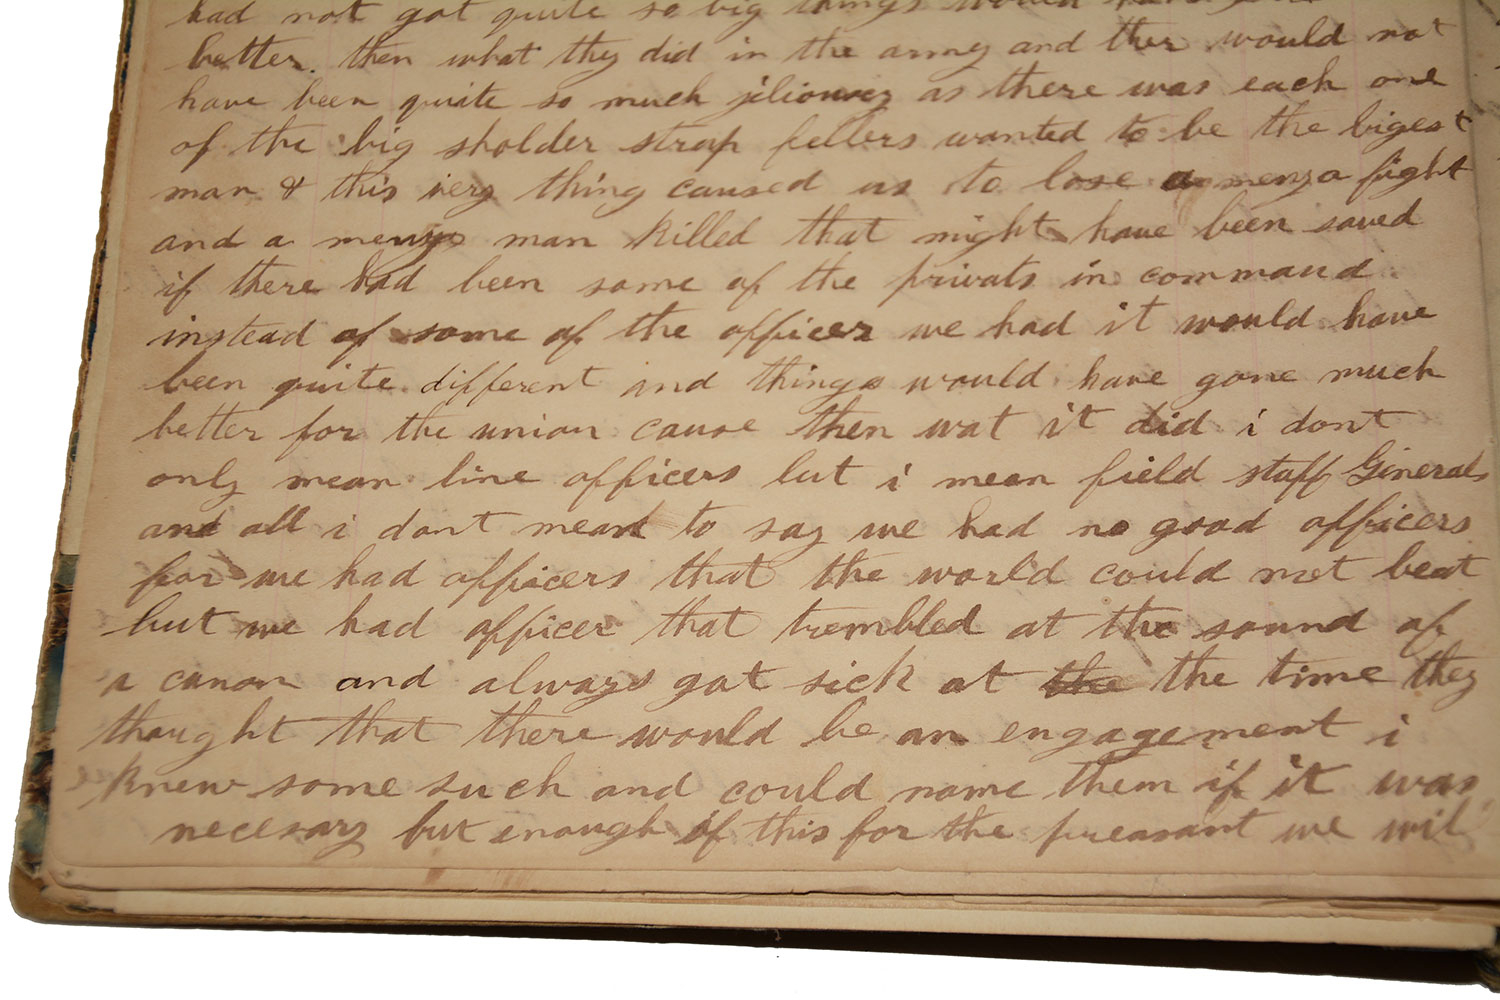 had not got quite so big things would
better. then what they did in the army and ther would not
have been quite so much jiliousey as there was each one
of the big sholder strap fellers wanted to be the bigest
man & this very thing caused us to lose a meny a fight
and a meny man killed that might have been saved
if there had been some of the privats in command
instead of some of the officer we had it would have
been quite different and things would have gone much
better for the union cause then wat it did i dont
only mean line officers but i mean field staff Generals
and all i dont mean to say we had no good officers
for we had officers that the world could not beat
but we had officer that trembled at the sound of
a canon and always got sick at the the time they
thought that there would be an engagement i
knew some such and could name them if it was
necesary but enough of this for the preasant we wil